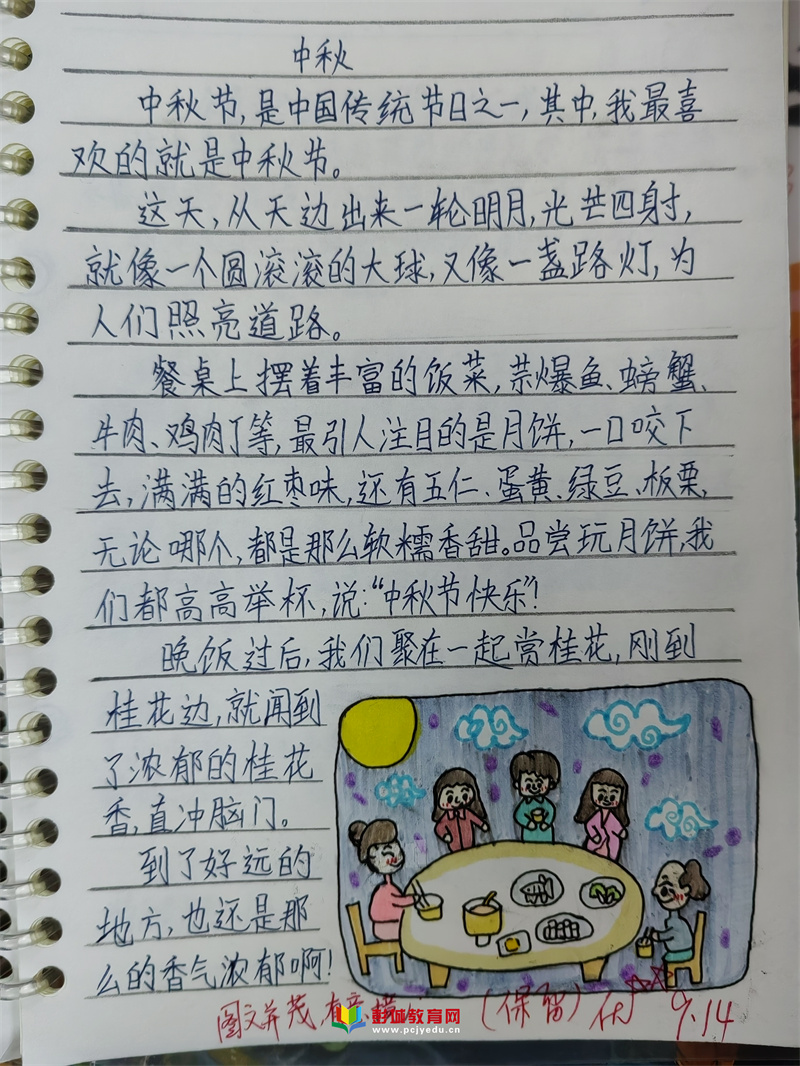 中秋
中秋节,是中国传统节日之一,其中,我最喜
欢的就是中秋节。
这天,从天边出来一轮明月,光芒四射,
就像一个圆滚滚的大球,又像一盏路灯,为
人们照亮道路。
餐桌上摆着丰富的饭菜,爆鱼、螃蟹、
牛肉、鸡肉丁等,最引人注目的是月饼,一口咬下
去,满满的红枣味,还有五仁、蛋黄、绿豆、板栗,
无论哪个,都是那么软糯香甜。品尝玩月饼,我
们都高高举杯,说:“中秋节快乐”!
晚饭过后,我们聚在一起赏桂花,刚到
桂花边,就闻到
了浓郁的桂花
香,直冲脑门。
到了好远的
地方,也还是那
么的香气浓郁啊!
图文并茂,有意 (保留) 优 9.14
彭城教育网
www.pcjyedu.cn